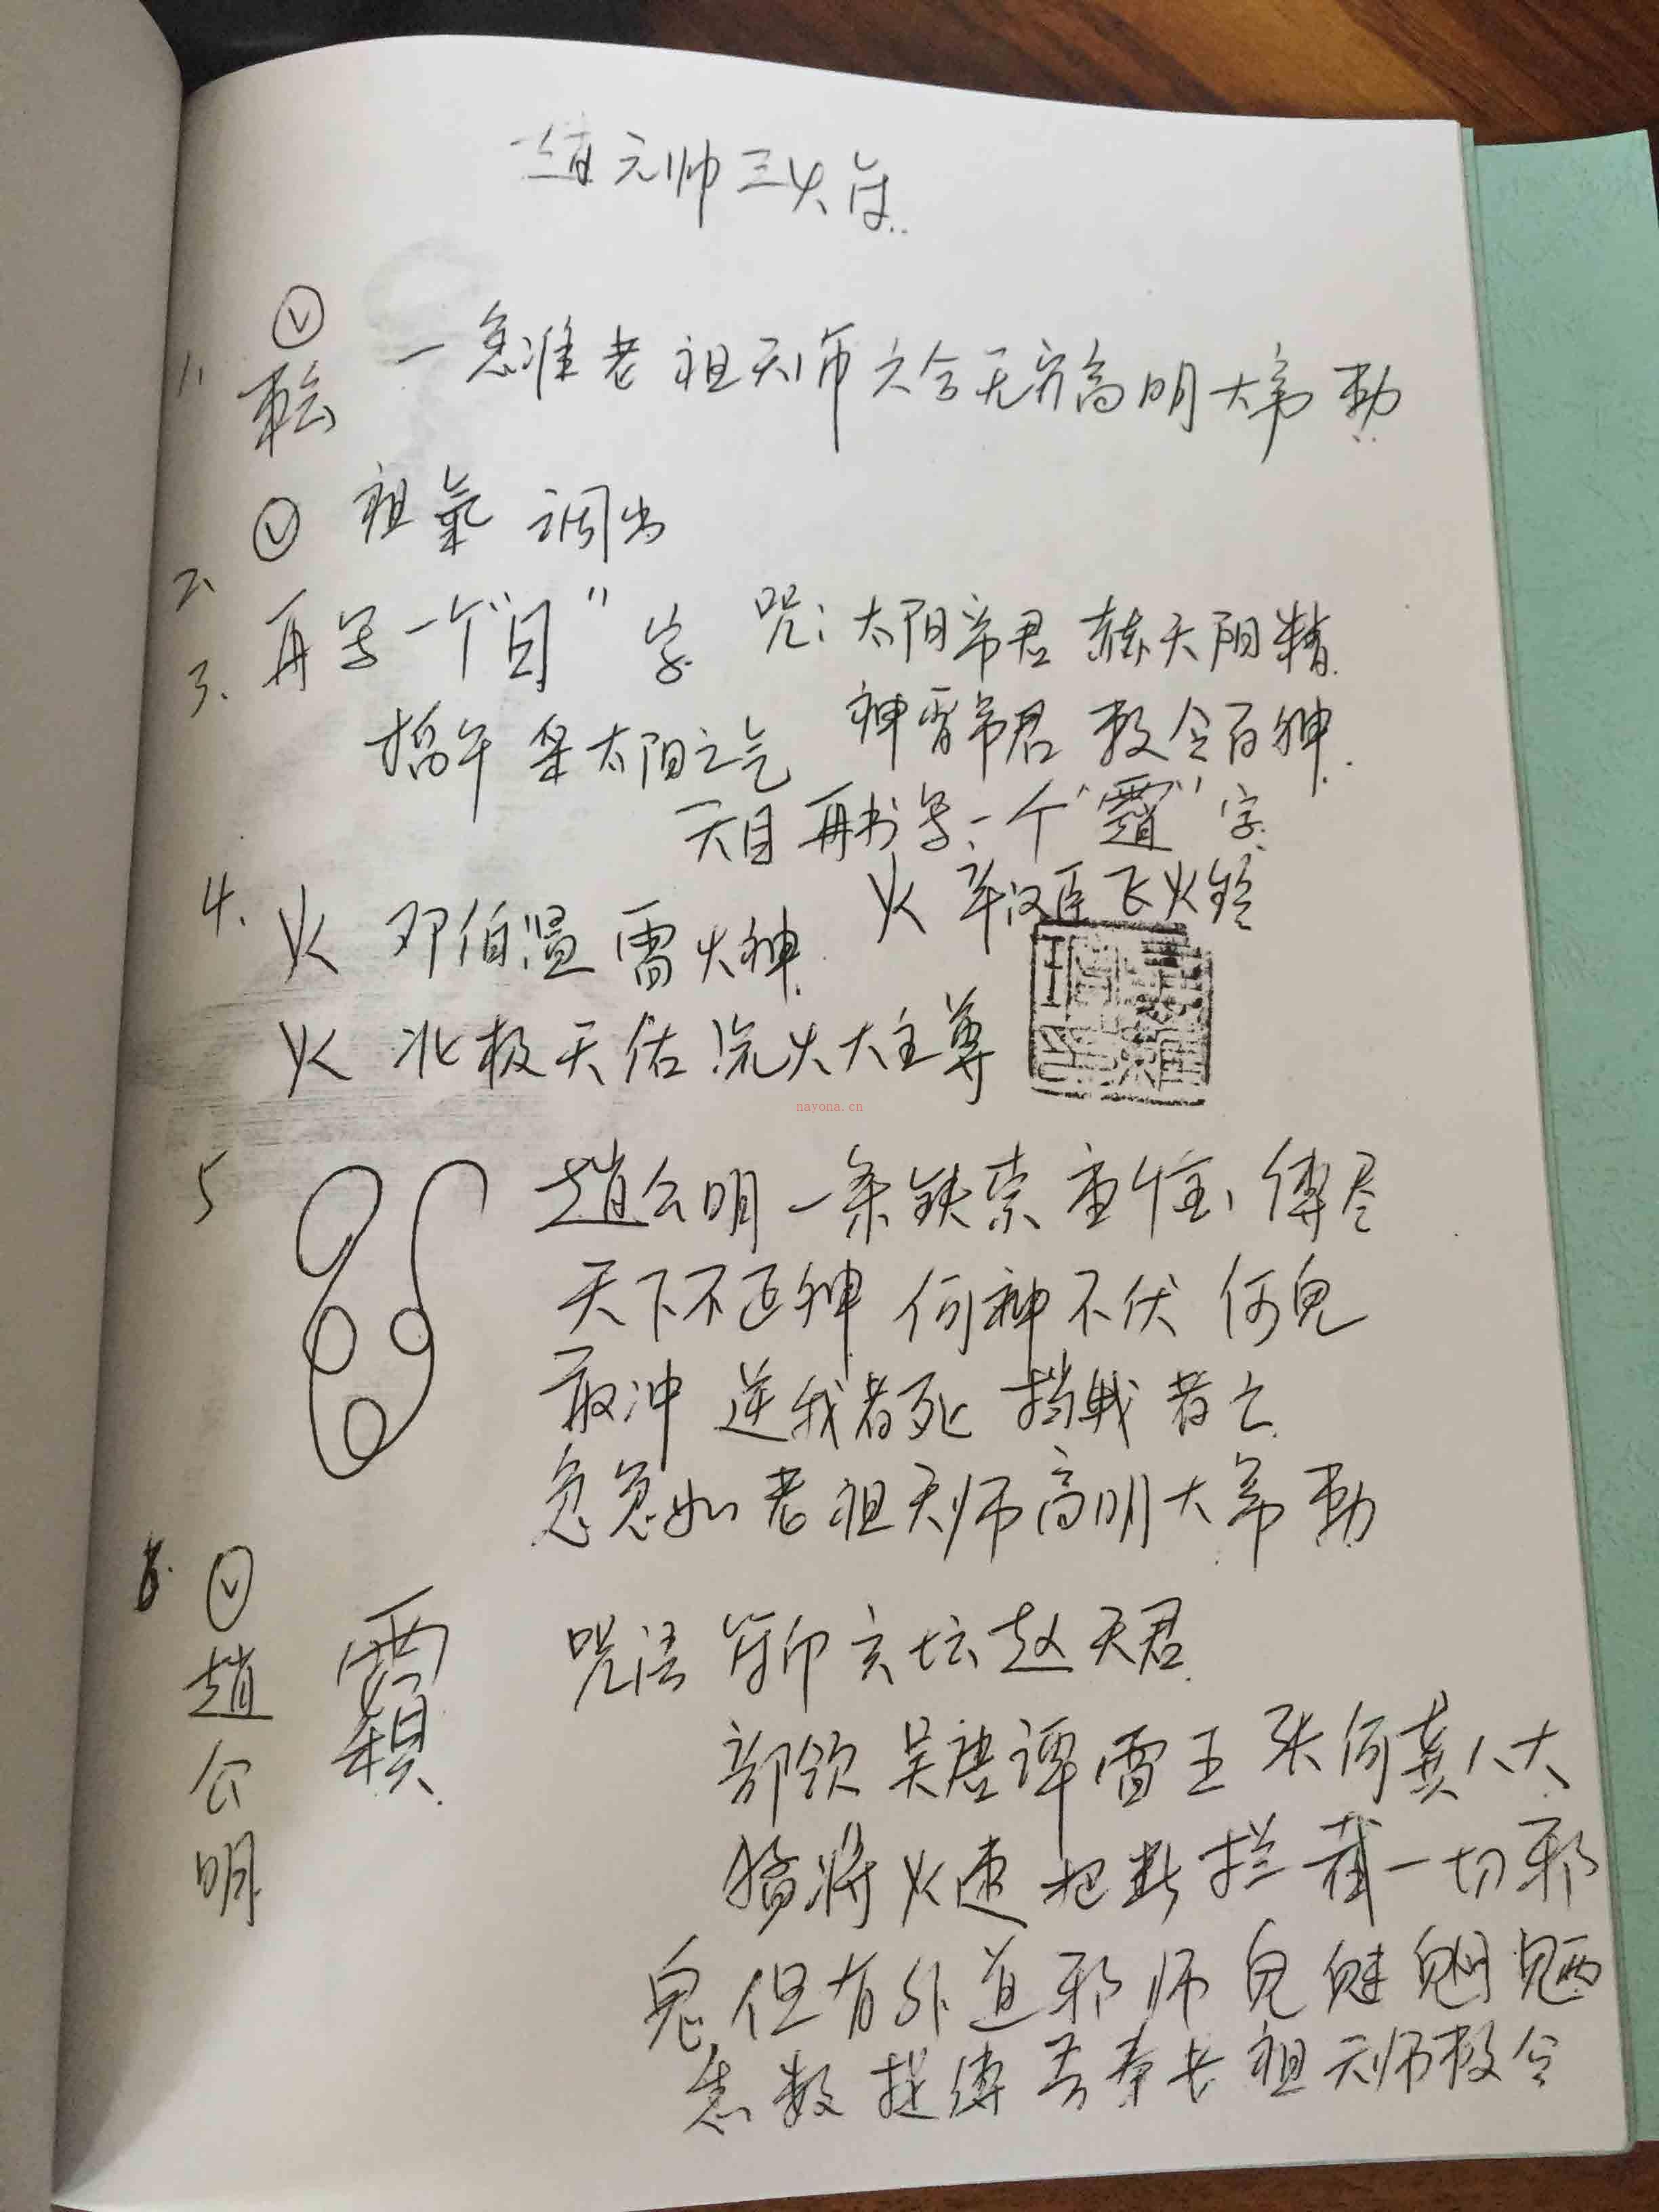 赵元帅三火符
1. 一急准老祖天师六合无穷高明大帝勅
祖氣 调出
2、
3、再写一个"日"字 咒:太阳帝君 赫天阳精
掐午 采太阳之气 神霄帝君 敕令百神
天目 再书写一个" "字
4. 火 邓伯温 雷火神 火 辛汉臣 飞火铃
火 北极天佑 火大主尊
nayona.cn
5 趙公明 一条铁索 重 缚尽
天下不正神 何神不伏 何鬼
敢冲 逆我者死 挡我者亡
急急如老祖天师高明大帝勅
6. 趙公明 咒语 符印玄坛赵天君
部领 吴唐谭雷王 张何龚八大
猛将 火速把断拦截一切邪
鬼 但有外道邪师 鬼魅魍魉
悉数捉缚 吾奉老祖天师敕令